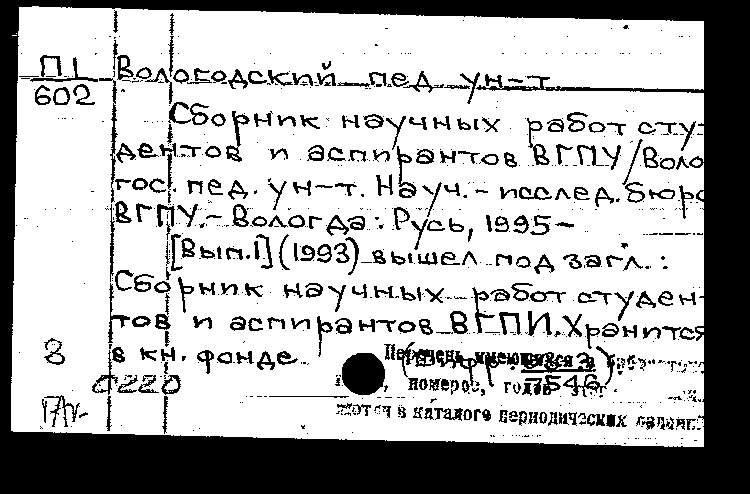 П1 Вологодский пед ун-т
602
Сборник научных работ сту-
дентов и аспирантов ВГПУ/Воло
гос. пед. ун-т. Науч.-исслед. бюро
ВГПУ.- Вологда: Русь, 1995-
[Вып.1] (1993) вышел под загл.:
Сборник научных работ студен-
тов и аспирантов ВГПИ. Хранится
8 в кн. фонде
Перечень имеющихся в
0220 номеров, годов
7546
в каталоге периодических